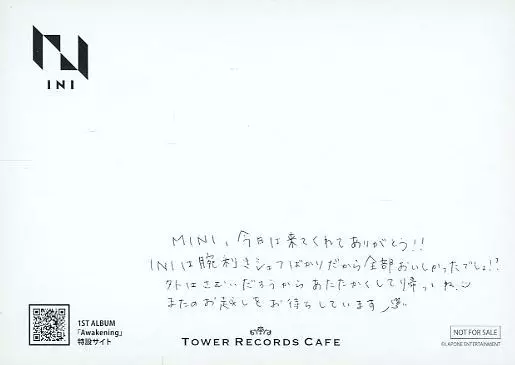 INI
MINI、今日は来てくれてありがとう!!
INIは腕利きシェフばかりだから全部おいしかったでしょ!?
外はさむいだろうからあたたかくして帰ってね
またのお越しをお待ちしています
1ST ALBUM
「Awakening」
特設サイト
TOWER RECORDS CAFE
NOT FOR SALE
©LAPONE ENTERTAINMENT